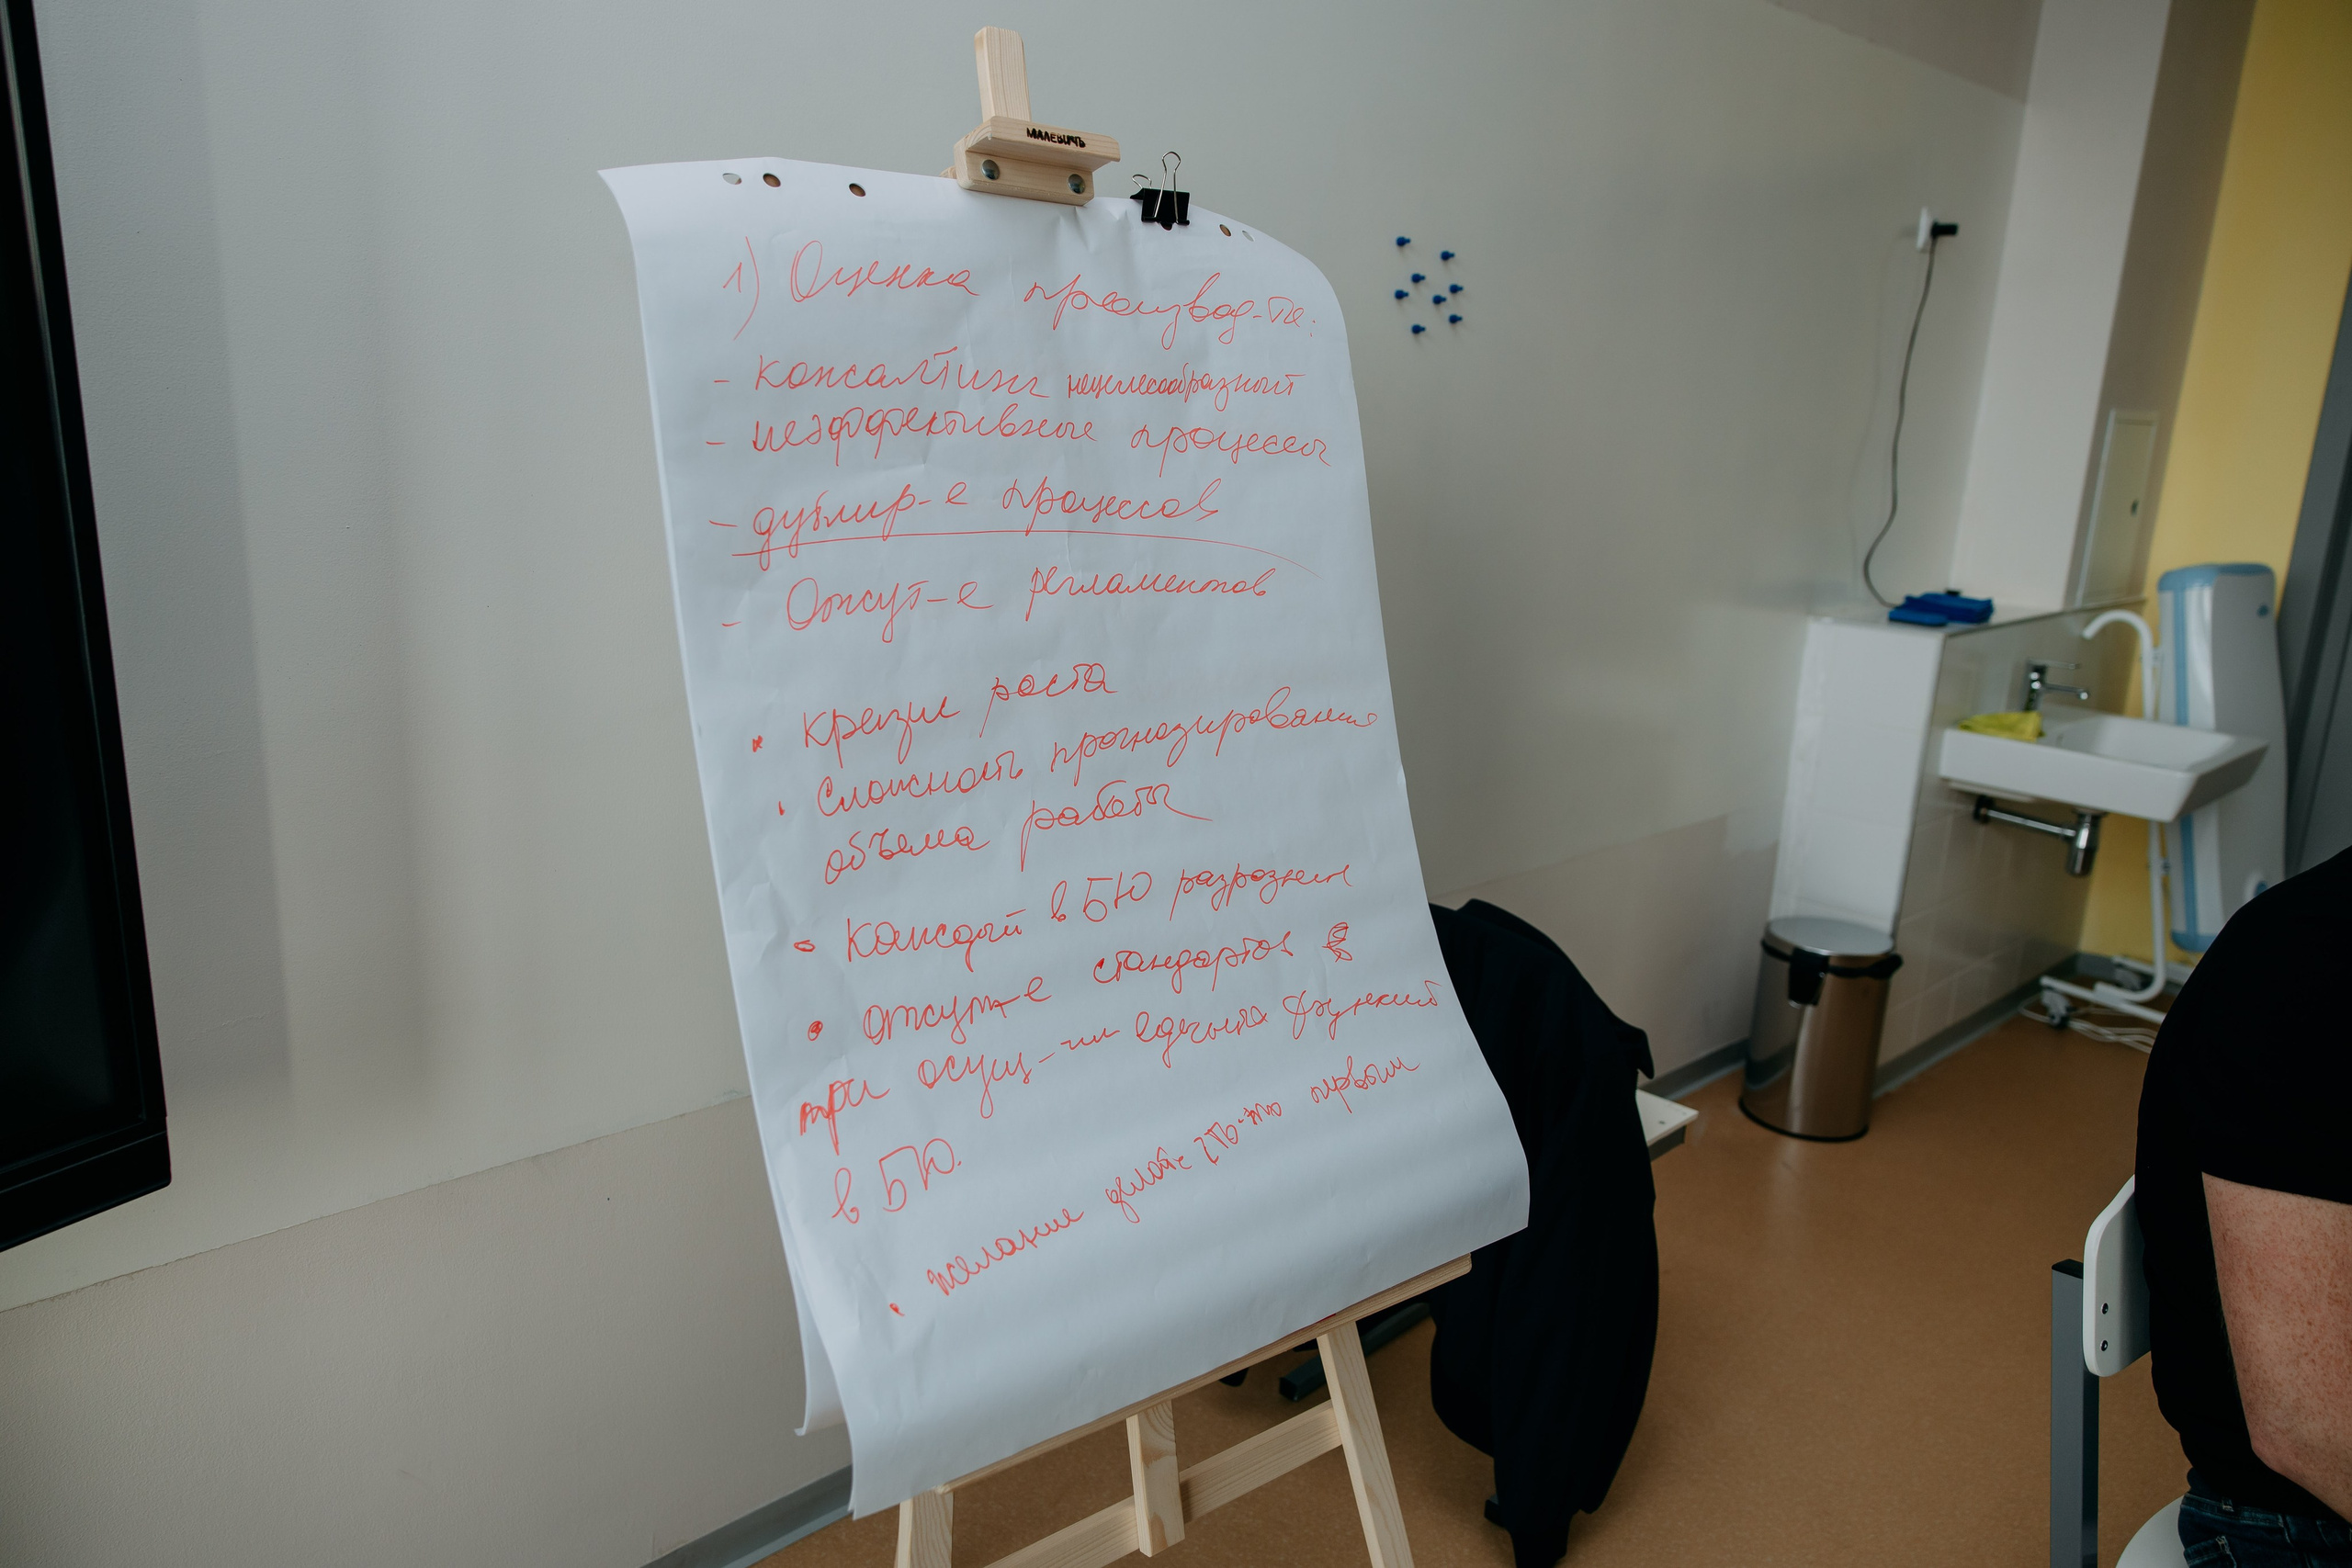 МАЛЕВИЧЪ
1) Оценка производ-ти:
- консалтинг нецелесообразный
- неэффективные процессы
- дублир-е процессов
- Отсут-е регламентов
• кризис роста
• Сложность прогнозирования
объема работы
• Каждый в БЮ разрознен
• отсут-е стандартов в
при осущ-ии функций
в БЮ.
• желание делать что-то первым